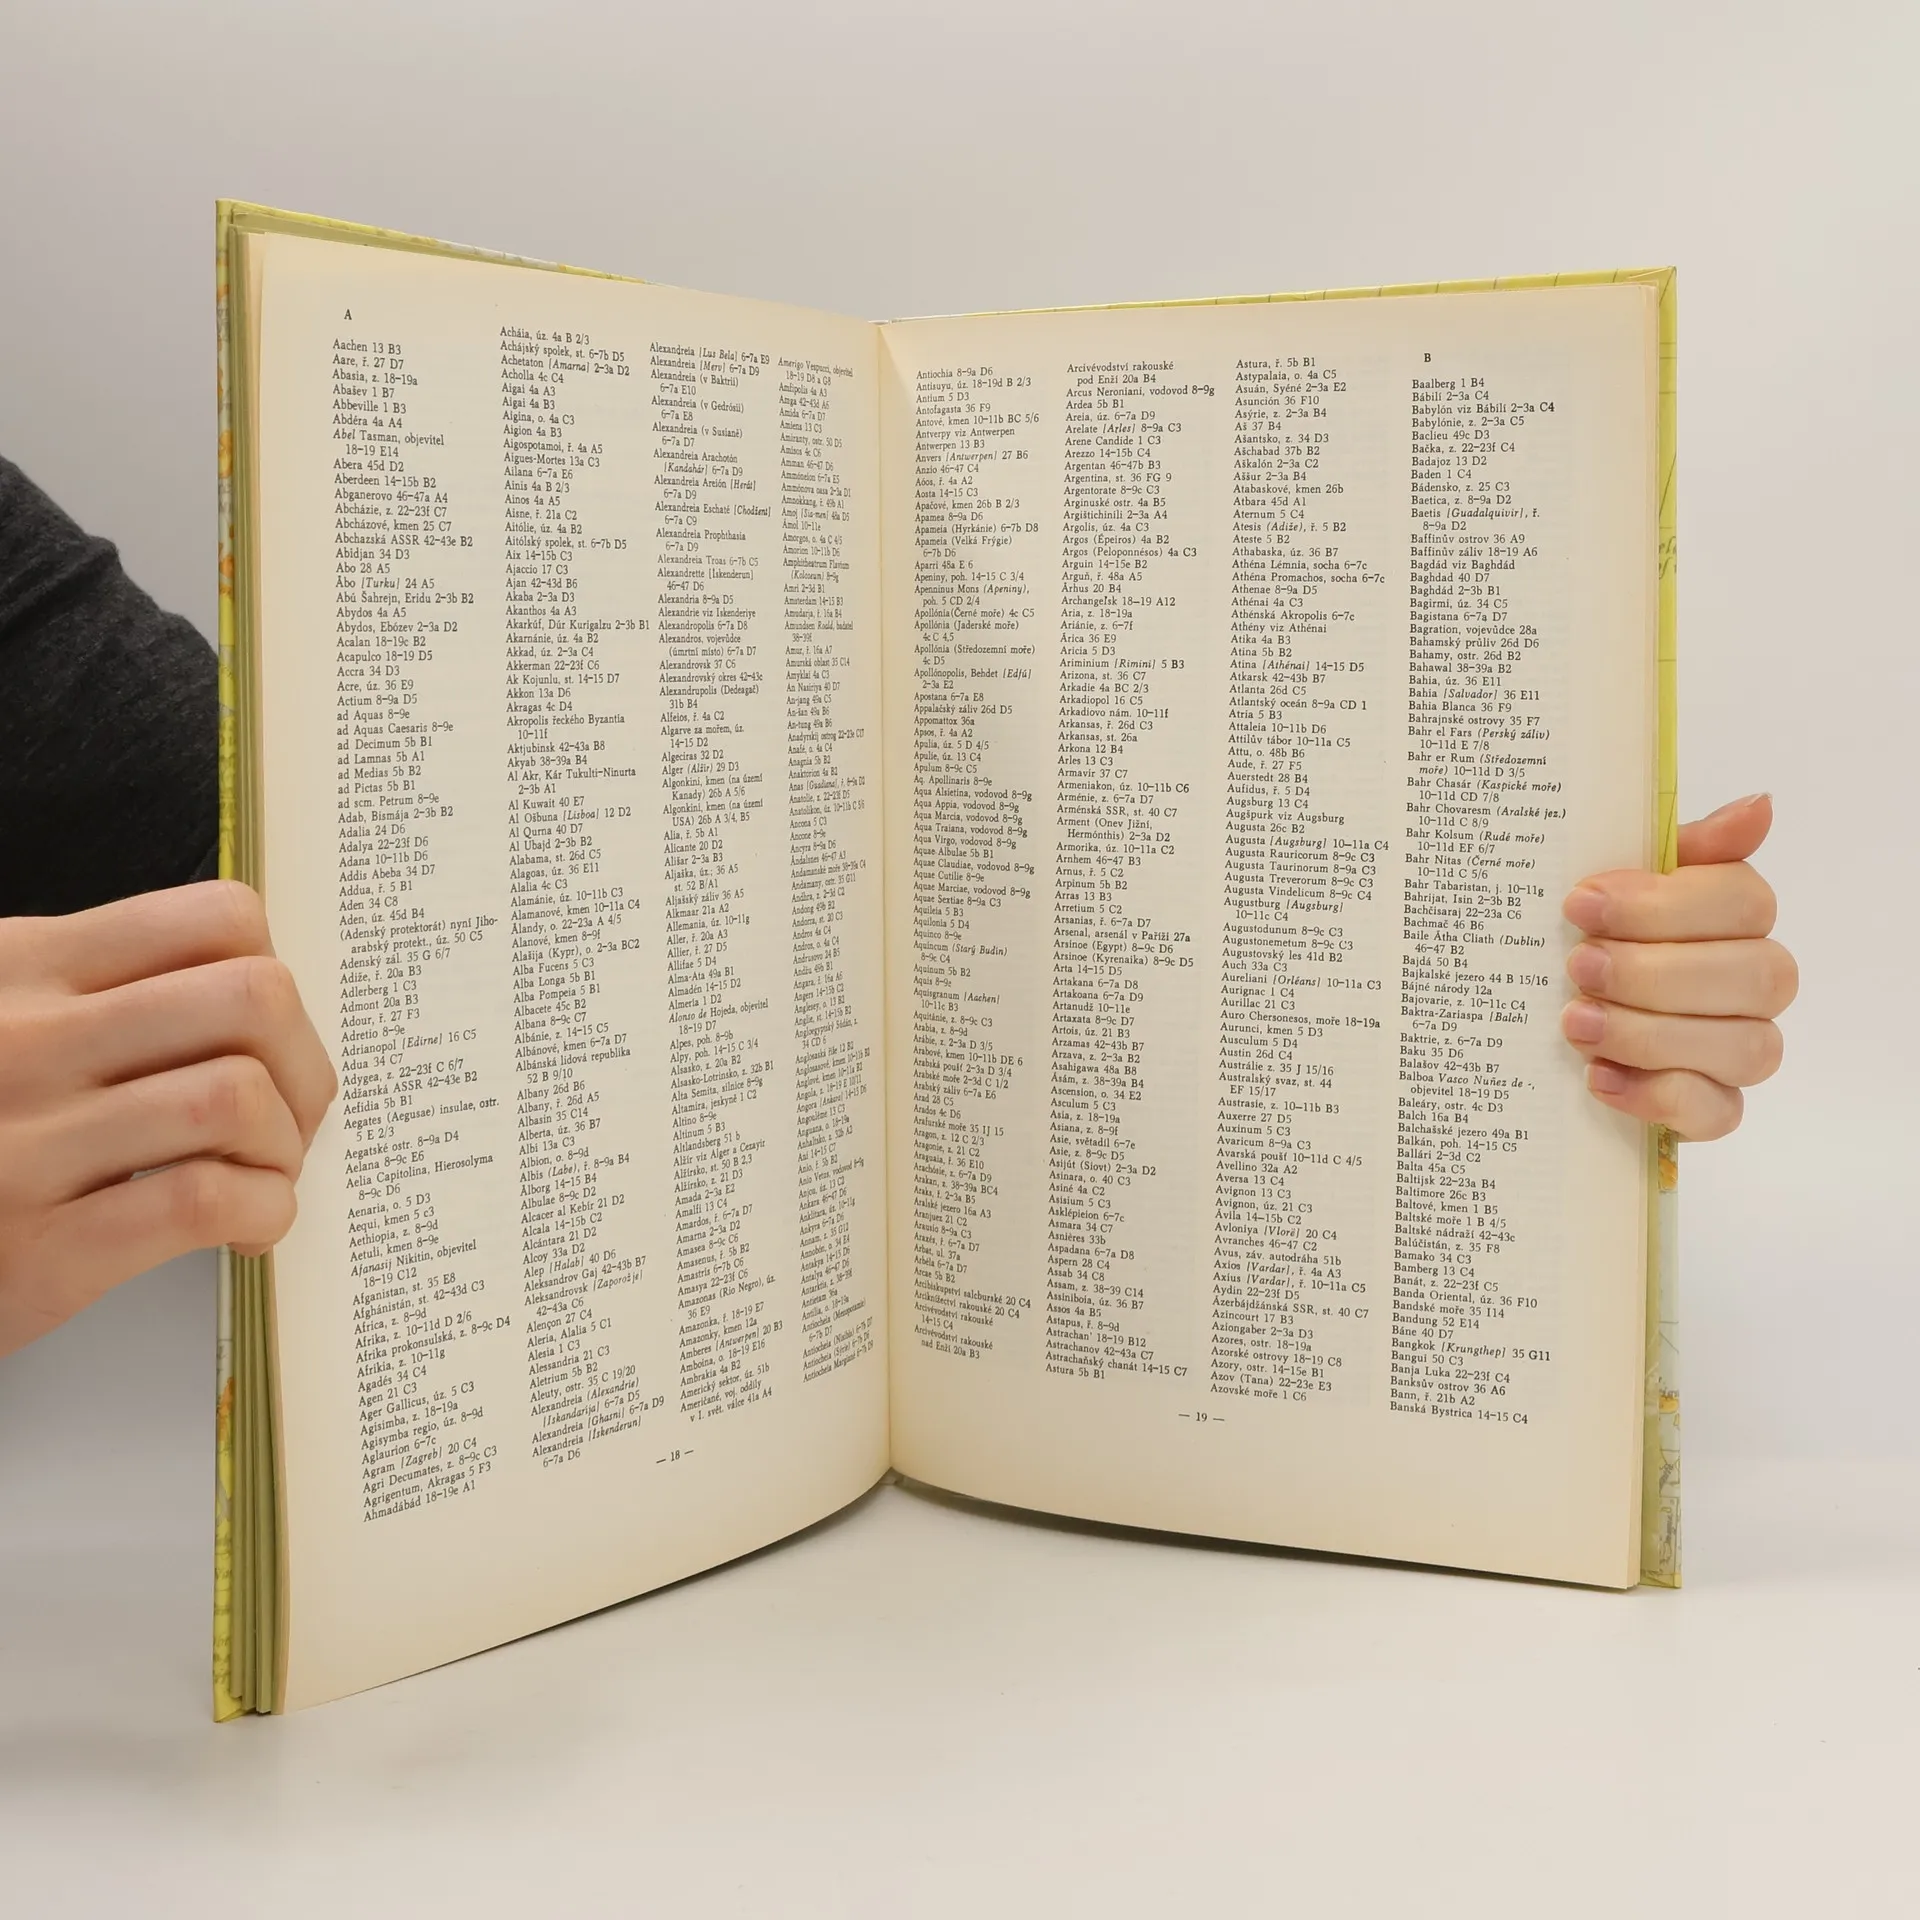 A
Aachen 13 B3
Aare, ř. 27 D7
Abasia, z. 18-19a
Abašev 1 B7
Abbeville 1 B3
Abdéra 4a A4
Abel Tasman, objevitel
18-19 E14
Abera 45d D2
Aberdeen 14-15b B2
Abganerovo 46-47a A4
Abcházie, z. 22-23f C7
Abcházové, kmen 25 C7
Abchazská ASSR 42-43e B2
Abidjan 34 D3
Abo 28 A5
Åbo [Turku] 24 A5
Abú Šahrejn, Eridu 2-3b B2
Abydos 4a A5
Abydos, Ebózev 2-3a D2
Acalan 18-19c B2
Acapulco 18-19 D5
Accra 34 D3
Acre, úz. 36 E9
Actium 8-9a D5
ad Aquas 8-9e
ad Aquas Caesaris 8-9e
ad Decimum 5b B1
ad Lamnas 5b A1
ad Medias 5b B2
ad Pictas 5b B1
ad scm. Petrum 8-9e
Adab, Bismája 2-3b B2
Adalia 24 D6
Adalya 22-23f D6
Adana 10-11b D6
Addis Abeba 34 D7
Addua, ř. 5 B1
Aden 34 C8
Aden, úz. 45d B4
(Adenský protektorát) nyní Jiho-
arabský protekt., úz. 50 C5
Adenský zál. 35 G 6/7
Adiže, ř. 20a B3
Adlerberg 1 C3
Admont 20a B3
Adour, ř. 27 F3
Adretio 8-9e
Adrianopol [Edirne] 16 C5
Adua 34 C7
Adygea, z. 22-23f C 6/7
Adžarská ASSR 42-43e B2
Aefidia 5b B1
Aegates (Aegusae) insulae, ostr.
5 E 2/3
Aegatské ostr. 8-9a D4
Aelana 8-9c E6
Aelia Capitolina, Hierosolyma
8-9c D6
Aenaria, o. 5 D3
Aequi, kmen 5 c3
Aethiopia, z. 8-9d
Aetuli, kmen 8-9e
Afanasij Nikitin, objevitel
18-19 C12
Afganistan, st. 35 E8
Afghánistán, st. 42-43d C3
Africa, z. 8-9d
Afrika, z. 10-11d D 2/6
Afrika prokonsulská, z. 8-9c D4
Afrikia, z. 10-11g
Agadés 34 C4
Agen 21 C3
Ager Gallicus, úz. 5 C3
Agisimba, z. 18-19a
Agisymba regio, úz. 8-9d
Aglaurion 6-7c
Agram [Zagreb] 20 C4
Agri Decumates, z. 8-9c C3
Agrigentum, Akragas 5 F3
Ahmadábád 18-19e A1
Acháia, úz. 4a B 2/3
Achájský spolek, st. 6-7b D5
Achetaton [Amarna] 2-3a D2
Acholla 4c C4
Aigai 4a A3
Aigai 4a B3
Aigina, o. 4a C3
Aigion 4a B3
Aigospotamoi, ř. 4a A5
Aigues-Mortes 13a C3
Ailana 6-7a E6
Ainis 4a B 2/3
Ainos 4a A5
Aisne, ř. 21a C2
Aitólie, úz. 4a B2
Aitólský spolek, st. 6-7b D5
Aix 14-15b C3
Ajaccio 17 C3
Ajan 42-43d B6
Akaba 2-3a D3
Akanthos 4a A3
Akarkúf, Dúr Kurigalzu 2-3b B1
Akarnánie, úz. 4a B2
Akkad, úz. 2-3a C4
Akkerman 22-23f C6
Ak Kojunlu, st. 14-15 D7
Akkon 13a D6
Akragas 4c D4
Akropolis řeckého Byzantia
10-11f
Aktjubinsk 42-43a B8
Akyab 38-39a B4
Al Akr, Kár Tukulti-Ninurta
2-3b A1
Al Kuwait 40 E7
Al Ošbuna [Lisboa] 12 D2
Al Qurna 40 D7
Al Ubajd 2-3b B2
Alabama, st. 26d C5
Alagoas, úz. 36 E11
Alalia 4c C3
Alamánie, úz. 10-11b C3
Alamanové, kmen 10-11a C4
Ålandy, o. 22-23a A 4/5
Alanové, kmen 8-9f
Alašija (Kypr), o. 2-3a BC2
Alba Fucens 5 C3
Alba Longa 5b B1
Alba Pompeia 5 B1
Albacete 45c B2
Albana 8-9c C7
Albánie, z. 14-15 C5
Albánové, kmen 6-7a D7
Albánská lidová republika
52 B 9/10
Albany 26d B6
Albany, ř. 26d A5
Albasin 35 C14
Alberta, úz. 36 B7
Albi 13a C3
Albion, o. 8-9d
Albis (Labe), ř. 8-9a B4
Ålborg 14-15 B4
Albulae 8-9c D2
Alcacer al Kebír 21 D2
Alcala 14-15b C2
Alcántara 21 D2
Alcoy 33a D2
Alep [Halab] 40 D6
Aleksandrov Gaj 42-43b B7
Aleksandrovsk [Zaporožje]
42-43a C6
Alençon 27 C4
Aleria, Alalia 5 C1
Alesia 1 C3
Alessandria 21 C3
Aletrium 5b B2
Aleuty, ostr. 35 C 19/20
Alexandreia (Alexandrie)
[Iskandarija] 6-7a D5
Alexandreia [Ghasni] 6-7a D9
Alexandreia [Iskenderun]
6-7a D6
Alexandreia [Lus Bela] 6-7a E9
Alexandreia [Merv] 6-7a D9
Alexandreia (v Baktrii)
6-7a E10
Alexandreia (v Gedrósii)
6-7a E8
Alexandreia (v Susianě)
6-7a D7
Alexandreia Arachotón
[Kandahár] 6-7a D9
Alexandreia Areión [Herát]
6-7a D9
Alexandreia Eschaté [Chodžent]
6-7a C9
Alexandreia Prophthasia
6-7a D9
Alexandreia Troas 6-7b C5
Alexandrette [Iskenderun]
46-47 D6
Alexandria 8-9a D5
Alexandrie viz Iskenderiye
Alexandropolis 6-7a D8
Alexandros, vojevůdce
(úmrtní místo) 6-7a D7
Alexandrovsk 37 C6
Alexandrovský okres 42-43c
Alexandrupolis (Dedeagač)
31b B4
Alfeios, ř. 4a C2
Algarve za mořem, úz.
14-15 D2
Algeciras 32 D2
Alger (Alžír) 29 D3
Algonkini, kmen (na území
Kanady) 26b A 5/6
Algonkini, kmen (na území
USA) 26b A 3/4, B5
Alia, ř. 5b A1
Alicante 20 D2
Ališar 2-3a B3
Aljaška, úz.; 36 A5
st. 52 B/A1
Aljašský záliv 36 A5
Alkmaar 21a A2
Allemania, úz. 10-11g
Aller, ř. 20a A3
Allier, ř. 27 D5
Allifae 5 D4
Alma-Ata 49a B1
Almadén 14-15 D2
Almería 1 D2
Alonso de Hojeda, objevitel
18-19 D7
Alpes, poh. 8-9b
Alpy, poh. 14-15 C 3/4
Alsasko, z. 20a B2
Alsasko-Lotrinsko, z. 32b B1
Alta Semita, silnice 8-9g
Altamira, jeskyně 1 C2
Altino 8-9e
Altinum 5 B3
Altlandsberg 51 b
Alžír viz Alger a Cezayir
Alžírsko, st. 50 B 2,3
Alžírsko, z. 21 D3
Amada 2-3a E2
Amalfi 13 C4
Amardos, ř. 6-7a D7
Amarna 2-3a D2
Amasea 8-9c C6
Amasenus, ř. 5b B2
Amastris 6-7b C6
Amasya 22-23f C6
Amazonas (Rio Negro), úz.
36 E9
Amazonka, ř. 18-19 E7
Amazonky, kmen 12a
Amberes [Antwerpen] 20 B3
Amboina, o. 18-19 E16
Ambrakia 4a B2
Americký sektor, úz. 51b
Američané, voj. oddíly
v I. svět. válce 41a A4
Amerigo Vespucci, objevitel
18-19 D8 a G8
Amfipolis 4a A3
Amga 42-43d A6
Amida 6-7a D7
Amiens 13 C3
Amiranty, ostr. 50 D5
Amisos 4c C6
Amman 46-47 D6
Ammóneion 6-7a E5
Ammónova oasa 2-3a D1
Amnokkang, ř. 49b A1
Amoj [Sia-men] 48a D5
Ámol 10-11e
Amorgos, o. 4a C 4/5
Amorion 10-11b D6
Amphitheatrum Flavium
(Koloseum) 8-9g
Amri 2-3d B1
Amsterdam 14-15 B3
Amudarja, ř. 16a B4
Amundsen Roald, badatel
38-39f
Amur, ř. 16a A7
Amurská oblast 35 C14
Amyklai 4a C3
An Nasiriya 40 D7
An-jang 49a C5
An-šan 49a B6
An-tung 49a B6
Anadyrskij ostrog 22-23c C17
Anafé, o. 4a C4
Anagnia 5b B2
Anaktorion 4a B2
Anas [Guadiana], ř. 8-9a D2
Anatolie, z. 22-23f D5
Anatolikon, úz. 10-11b C 5/6
Ancona 5 C3
Ancone 8-9e
Ancyra 8-9a D6
Andalsnes 46-47 A3
Andamanské moře 38-39a C4
Andamany, ostr. 35 G11
Andhra, z. 2-3d C2
Andong 49b B2
Andorra, st. 20 C3
Andros 4a C4
Andros, o. 4a C4
Andrusovo 24 B5
Andžu 49b B1
Angara, ř. 16a A6
Angers 14-15b C2
Anglesey, o. 13 B2
Anglie, st. 14-15b B2
Angloegyptský Súdán, z.
34 CD 6
Anglosaská říše 12 B2
Anglosasové, kmen 10-11b B2
Anglové, kmen 10-11a B2
Angola, z. 18-19 E 10/11
Angora [Ankara] 14-15 D6
Angoulême 13 C3
Anguana, o. 18-19a
Anhaltsko, z. 32b A2
Ani 14-15 C7
Anio, ř. 5b B2
Anio Vetus, vodovod 8-9g
Anjou, úz. 13 C2
Ankara 46-47 D6
Anklitara, úz. 10-11g
Ankyra 6-7a D6
Annam, z. 35 G12
Annobón, o. 34 E4
Antakya 14-15 D6
Antalya 46-47 D6
Antarktis, z. 38-39f
Antietam 36a
Antilia, o. 18-19a
Antiocheia (Mesopotamie)
6-7b D7
Antiocheia (Nisibis) 6-7b D7
Antiocheia (Sýrie) 6-7b D6
Antiocheia Margiané 6-7b D9
— 18 —
Antiochia 8-9a D6
Antisuyu, úz. 18-19d B 2/3
Antium 5 D3
Antofagasta 36 F9
Antové, kmen 10-11b BC 5/6
Antverpy viz Antwerpen
Antwerpen 13 B3
Anvers [Antwerpen] 27 B6
Anzio 46-47 C4
Aóos, ř. 4a A2
Aosta 14-15 C3
Apačové, kmen 26b B 2/3
Apamea 8-9a D6
Apameia (Hyrkánie) 6-7b D8
Apameia (Velká Frýgie)
6-7b D6
Aparri 48a E 6
Apeniny, poh. 14-15 C 3/4
Apenninus Mons (Apeniny),
poh. 5 CD 2/4
Apollónia(Černé moře) 4c C5
Apollónia (Jaderské moře)
4c C 4,5
Apollónia (Středozemní moře)
4c D5
Apollónopolis, Behdet [Edfú]
2-3a E2
Apostana 6-7a E8
Appalačský záliv 26d D5
Appomattox 36a
Apsos, ř. 4a A2
Apulia, úz. 5 D 4/5
Apulie, úz. 13 C4
Apulum 8-9c C5
Aq. Apollinaris 8-9e
Aqua Alsietina, vodovod 8-9g
Aqua Appia, vodovod 8-9g
Aqua Marcia, vodovod 8-9g
Aqua Traiana, vodovod 8-9g
Aqua Virgo, vodovod 8-9g
Aquae Albulae 5b B1
Aquae Claudiae, vodovod 8-9g
Aquae Cutilie 8-9e
Aquae Marciae, vodovod 8-9g
Aquae Sextiae 8-9a C3
Aquileia 5 B3
Aquilonia 5 D4
Aquinco 8-9e
Aquincum (Starý Budín)
8-9c C4
Aquinum 5b B2
Aquis 8-9e
Aquisgranum [Aachen]
10-11c B3
Aquitánie, z. 8-9c C3
Arabia, z. 8-9d
Arábie, z. 2-3a D 3/5
Arabové, kmen 10-11b DE 6
Arabská poušť 2-3a D 3/4
Arabské moře 2-3d C 1/2
Arabský záliv 6-7a E6
Arad 28 C5
Arados 4c D6
Arafurské moře 35 IJ 15
Aragon, z. 12 C 2/3
Aragonie, z. 21 C2
Araguaia, ř. 36 E10
Arachósie, z. 6-7a D9
Arakan, z. 38-39a BC4
Araks, ř. 2-3a B5
Aralské jezero 16a A3
Aranjuez 21 C2
Arausio 8-9a C3
Araxés, ř. 6-7a D7
Arbat, ul. 37a
Arbéla 6-7a D7
Arcae 5b B2
Arcibiskupství salcburské 20 C4
Arciknížectví rakouské 20 C4
Arcivévodství rakouské
14-15 C4
Arcivévodství rakouské
nad Enží 20a B3
Arcivévodství rakouské
pod Enží 20a B4
Arcus Neroniani, vodovod 8-9g
Ardea 5b B1
Areia, úz. 6-7a D9
Arelate [Arles] 8-9a C3
Arene Candide 1 C3
Arezzo 14-15b C4
Argentan 46-47b B3
Argentina, st. 36 FG 9
Argentorate 8-9c C3
Arginuské ostr. 4a B5
Argištichinili 2-3a A4
Argolis, úz. 4a C3
Argos (Épeiros) 4a B2
Argos (Peloponnésos) 4a C3
Arguin 14-15e B2
Arguň, ř. 48a A5
Århus 20 B4
Archangeľsk 18-19 A12
Aria, z. 18-19a
Ariánie, z. 6-7f
Árica 36 E9
Aricia 5 D3
Ariminium [Rimini] 5 B3
Arizona, st. 36 C7
Arkadie 4a BC 2/3
Arkadiopol 16 C5
Arkadiovo nám. 10-11f
Arkansas, ř. 26d C3
Arkansas, st. 26a
Arkona 12 B4
Arles 13 C3
Armavir 37 C7
Armeniakon, úz. 10-11b C6
Arménie, z. 6-7a D7
Arménská SSR, st. 40 C7
Arment (Onev Jižní,
Hermónthis) 2-3a D2
Armorika, úz. 10-11a C2
Arnhem 46-47 B3
Arnus, ř. 5 C2
Arpinum 5b B2
Arras 13 B3
Arretium 5 C2
Arsanias, ř. 6-7a D7
Arsenal, arsenál v Paříži 27a
Arsinoe (Egypt) 8-9c D6
Arsinoe (Kyrenaika) 8-9c D5
Arta 14-15 D5
Artakana 6-7a D8
Artakoana 6-7a D9
Artanudž 10-11e
Artaxata 8-9c D7
Artois, úz. 21 B3
Arzamas 42-43b B7
Arzava, z. 2-3a B2
Asahigawa 48a B8
Ásám, z. 38-39a B4
Ascension, o. 34 E2
Asculum 5 C3
Asia, z. 18-19a
Asiana, z. 8-9f
Asie, světadíl 6-7e
Asie, z. 8-9c D5
Asijút (Siovt) 2-3a D2
Asinara, o. 40 C3
Asiné 4a C2
Asisium 5 C3
Asklépieion 6-7c
Asmara 34 C7
Asnières 33b
Aspadana 6-7a D8
Aspern 28 C4
Assab 34 C8
Assam, z. 38-39 C14
Assiniboia, úz. 36 B7
Assos 4a B5
Astapus, ř. 8-9d
Astrachan' 18-19 B12
Astrachanov 42-43a C7
Astrachaňský chanát 14-15 C7
Astura 5b B1
Astura, ř. 5b B1
Astypalaia, o. 4a C5
Asuán, Syéné 2-3a E2
Asunción 36 F10
Asýrie, z. 2-3a B4
Aš 37 B4
Ašantsko, z. 34 D3
Ašchabad 37b B2
Aškalón 2-3a C2
Aššur 2-3a B4
Atabaskové, kmen 26b
Atbara 45d A1
Aternum 5 C4
Atesis (Adiže), ř. 5 B2
Ateste 5 B2
Athabaska, úz. 36 B7
Athéna Lémnia, socha 6-7c
Athéna Promachos, socha 6-7c
Athenae 8-9a D5
Athénai 4a C3
Athénská Akropolis 6-7c
Athény viz Athénai
Atika 4a B3
Atina 5b B2
Atina [Athénai] 14-15 D5
Atkarsk 42-43b B7
Atlanta 26d C5
Atlantský oceán 8-9a CD 1
Atria 5 B3
Attaleia 10-11b D6
Attilův tábor 10-11a C5
Attu, o. 48b B6
Aude, ř. 27 F5
Auerstedt 28 B4
Aufidus, ř. 5 D4
Augsburg 13 C4
Augšpurk viz Augsburg
Augusta 26c B2
Augusta [Augsburg] 10-11a C4
Augusta Rauricorum 8-9c C3
Augusta Taurinorum 8-9a C3
Augusta Treverorum 8-9c C3
Augusta Vindelicum 8-9c C4
Augustburg [Augsburg]
10-11c C4
Augustodunum 8-9c C3
Augustonemetum 8-9c C3
Augustovský les 41d B2
Auch 33a C3
Aureliani [Orléans] 10-11a C3
Aurignac 1 C4
Aurillac 21 C3
Auro Chersonesos, moře 18-19a
Aurunci, kmen 5 D3
Ausculum 5 D4
Austin 26d C4
Austrálie z. 35 J 15/16
Australský svaz, st. 44
EF 15/17
Austrasie, z. 10-11b B3
Auxerre 27 D5
Auxinum 5 C3
Avaricum 8-9a C3
Avarská poušť 10-11d C 4/5
Avellino 32a A2
Aversa 13 C4
Avignon 13 C3
Avignon, úz. 21 C3
Ávila 14-15b C2
Avloniya [Vlorë] 20 C4
Avranches 46-47 C2
Avus, záv. autodráha 51b
Axios [Vardar], ř. 4a A3
Axius [Vardar], ř. 10-11a C5
Aydin 22-23f D5
Ázerbájdžánská SSR, st. 40 C7
Azincourt 17 B3
Aziongaber 2-3a D3
Azores, ostr. 18-19a
Azorské ostrovy 18-19 C8
Azory, ostr. 14-15e B1
Azov (Tana) 22-23e E3
Azovské moře 1 C6
B
Baalberg 1 B4
Bábilí 2-3a C4
Babylón viz Bábilí 2-3a C4
Babylónie, z. 2-3a C5
Baclieu 49c D3
Bačka, z. 22-23f C4
Badajoz 13 D2
Baden 1 C4
Bádensko, z. 25 C3
Baetica, z. 8-9a D2
Baetis [Guadalquivir], ř.
8-9a D2
Baffinův ostrov 36 A9
Baffinův záliv 18-19 A6
Bagdád viz Baghdád
Baghdad 40 D7
Baghdád 2-3b B1
Bagirmi, úz. 34 C5
Bagistana 6-7a D7
Bagration, vojevůdce 28a
Bahamský průliv 26d D6
Bahamy, ostr. 26d B2
Bahawal 38-39a B2
Bahia, úz. 36 E11
Bahia [Salvador] 36 E11
Bahia Blanca 36 F9
Bahrajnské ostrovy 35 F7
Bahr el Fars (Perský záliv)
10-11d E 7/8
Bahr er Rum (Středozemní
moře) 10-11d D 3/5
Bahr Chasár (Kaspické moře)
10-11d CD 7/8
Bahr Chovaresm (Aralské jez.)
10-11d C 8/9
Bahr Kolsum (Rudé moře)
10-11d EF 6/7
Bahr Nitas (Černé moře)
10-11d C 5/6
Bahr Tabaristan, j. 10-11g
Bahrijat, Isin 2-3b B2
Bachčisaraj 22-23a C6
Bachmač 46 B6
Baile Átha Cliath (Dublin)
46-47 B2
Bajdá 50 B4
Bajkalské jezero 44 B 15/16
Bájné národy 12a
Bajovarie, z. 10-11c C4
Baktra-Zariaspa [Balch]
6-7a D9
Baktrie, z. 6-7a D9
Baku 35 D6
Balašov 42-43b B7
Balboa Vasco Nuñez de -,
objevitel 18-19 D5
Baleáry, ostr. 4c D3
Balch 16a B4
Balchašské jezero 49a B1
Balkán, poh. 14-15 C5
Ballári 2-3d C2
Balta 45a C5
Baltijsk 22-23a B4
Baltimore 26c B3
Baltové, kmen 1 B5
Baltské moře 1 B 4/5
Baltské nádraží 42-43c
Balúčistán, z. 35 F8
Bamako 34 C3
Bamberg 13 C4
Banát, z. 22-23f C5
Banda Oriental, úz. 36 F10
Bandské moře 35 I14
Bandung 52 E14
Báne 40 D7
Bangkok [Krungthep] 35 G11
Bangui 50 C3
Banja Luka 22-23f C4
Banksův ostrov 36 A6
Bann, ř. 21b A2
Banská Bystrica 14-15 C4
— 19 —